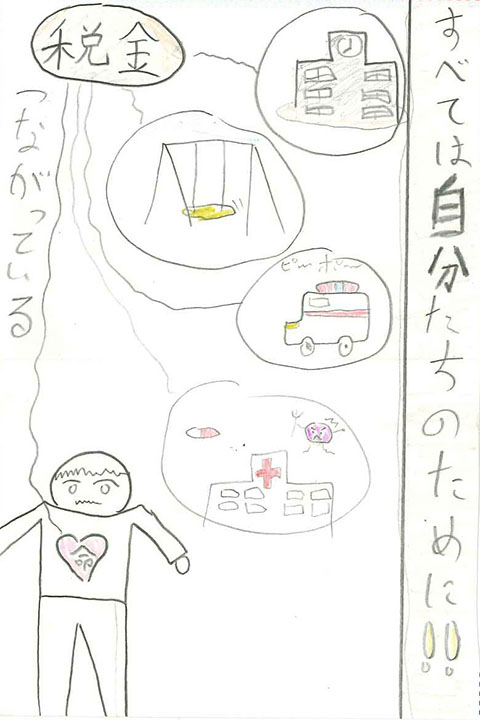 すべては自分たちのために!!
税金
つながっている
ピーポー
命